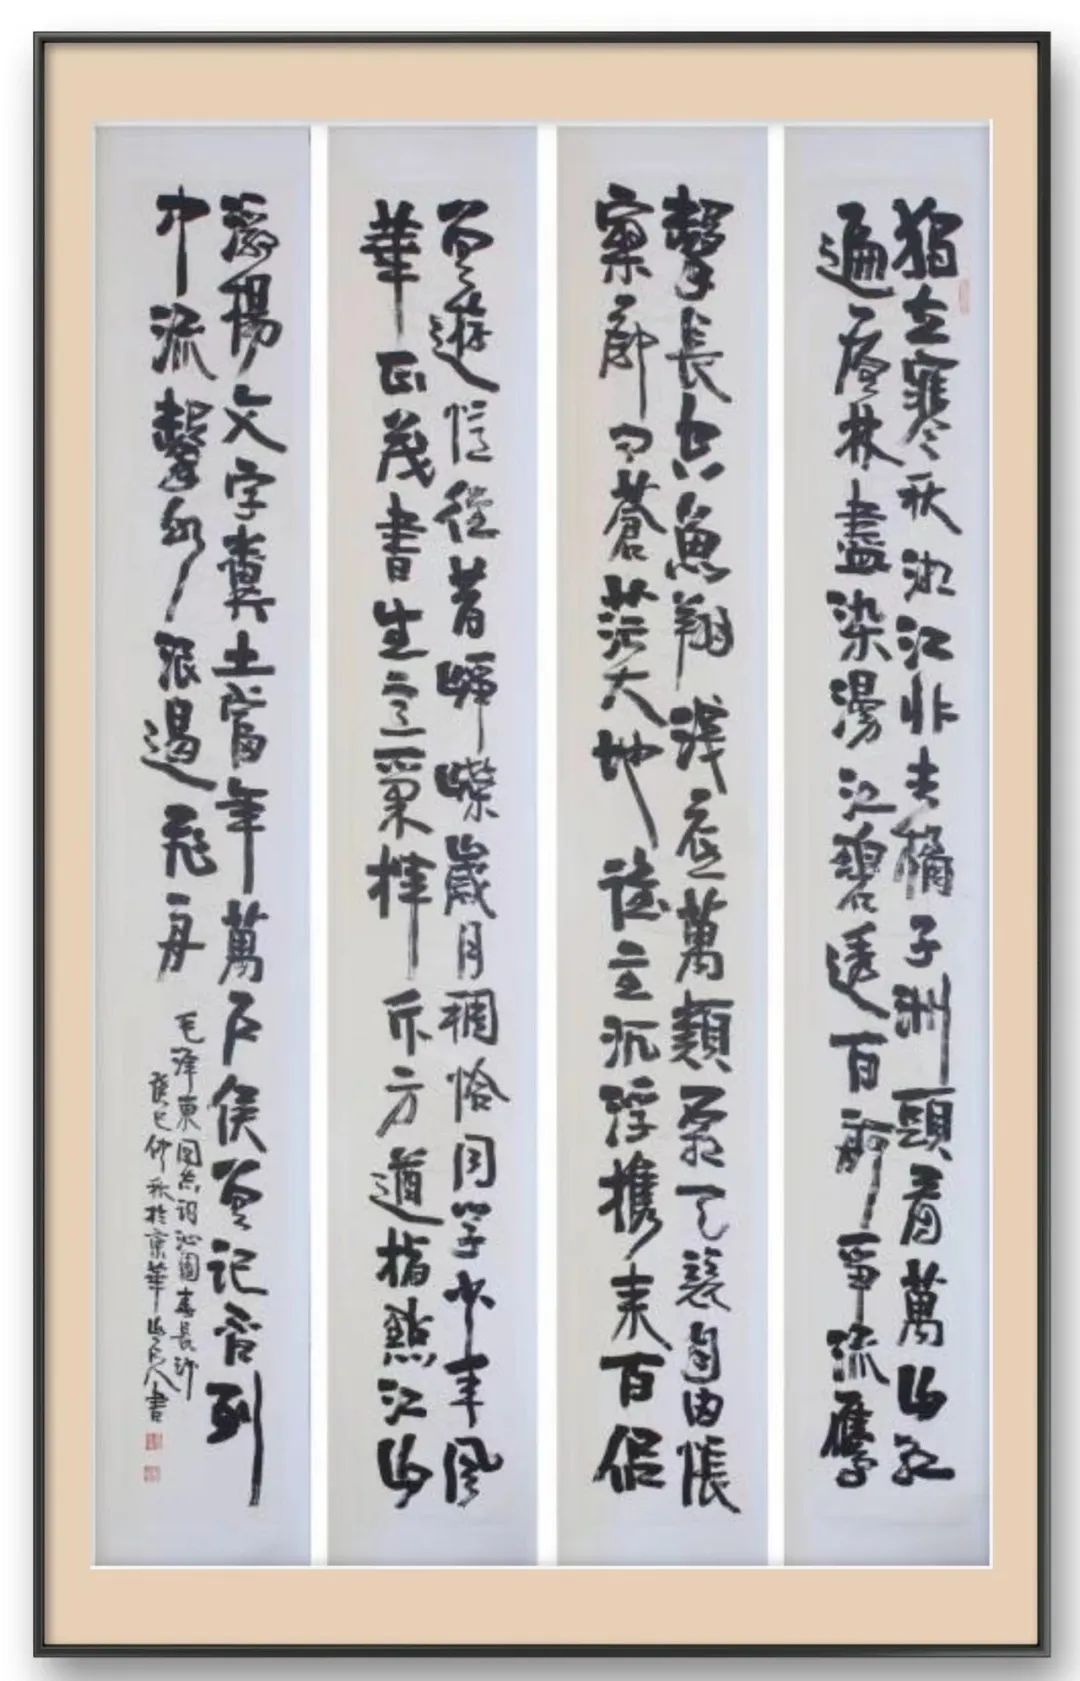 獨立寒秋湘江北去橘子洲頭看萬山紅
遍層林盡染漫江碧透百舸爭流鷹
擊長空魚翔淺底萬類霜天競自由悵
寥廓問蒼茫大地誰主沉浮攜來百侶
曾遊憶往昔崢嶸歲月稠恰同學少年風
華正茂書生意氣揮斥方遒指點江山
激揚文字糞土當年萬戶侯曾記否到
中流擊水浪遏飛舟
毛澤東同志詞沁園春長沙
癸巳仲秋於京華書